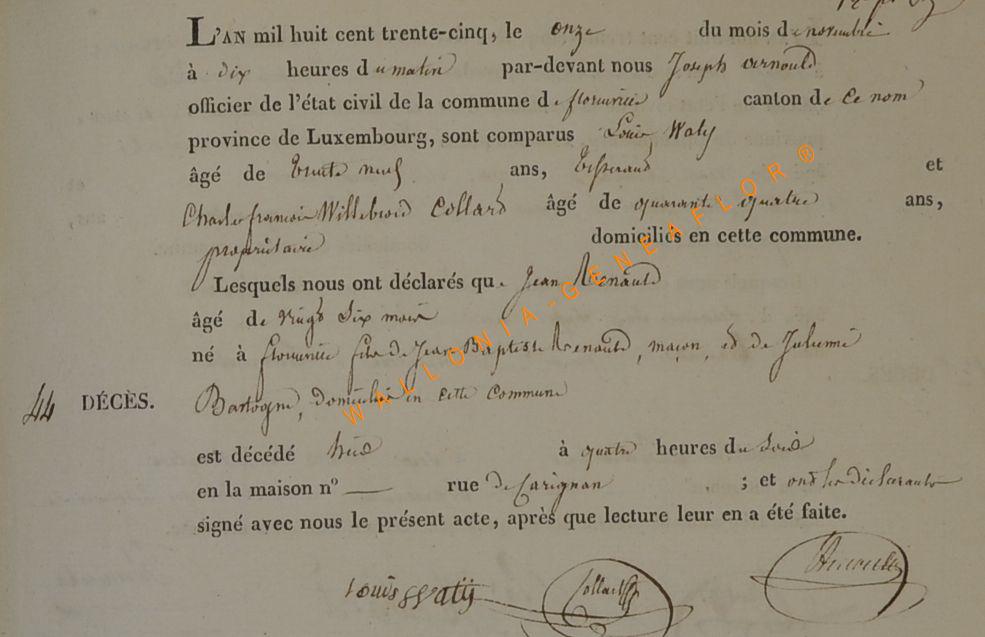 L'AN mil huit cent trente-cinq, le onze du mois de novembre
à dix heures du matin par-devant nous Joseph Arnould
officier de l'état civil de la commune de florenville canton de ce nom
province de Luxembourg, sont comparus Louis Waty
âgé de trente neuf ans, tisserand et
Charles françois Willebrord Collard âgé de quarante quatre ans,
propriétaire domiciliés en cette commune.
Lesquels nous ont déclarés que Jean Renauld
âgé de vingt six mois
né à florenville fils de Jean Baptiste Renauld, maçon, et de Julienne
44 DÉCÈS. Bastogne, domiciliés en cette commune
est décédé hier à quatre heures du soir
en la maison nº — rue de Carignan ; et ont les déclarants
signé avec nous le présent acte, après que lecture leur en a été faite.
Louis Waty Collard Arnould
WALLONIA-GENEAFLOR®